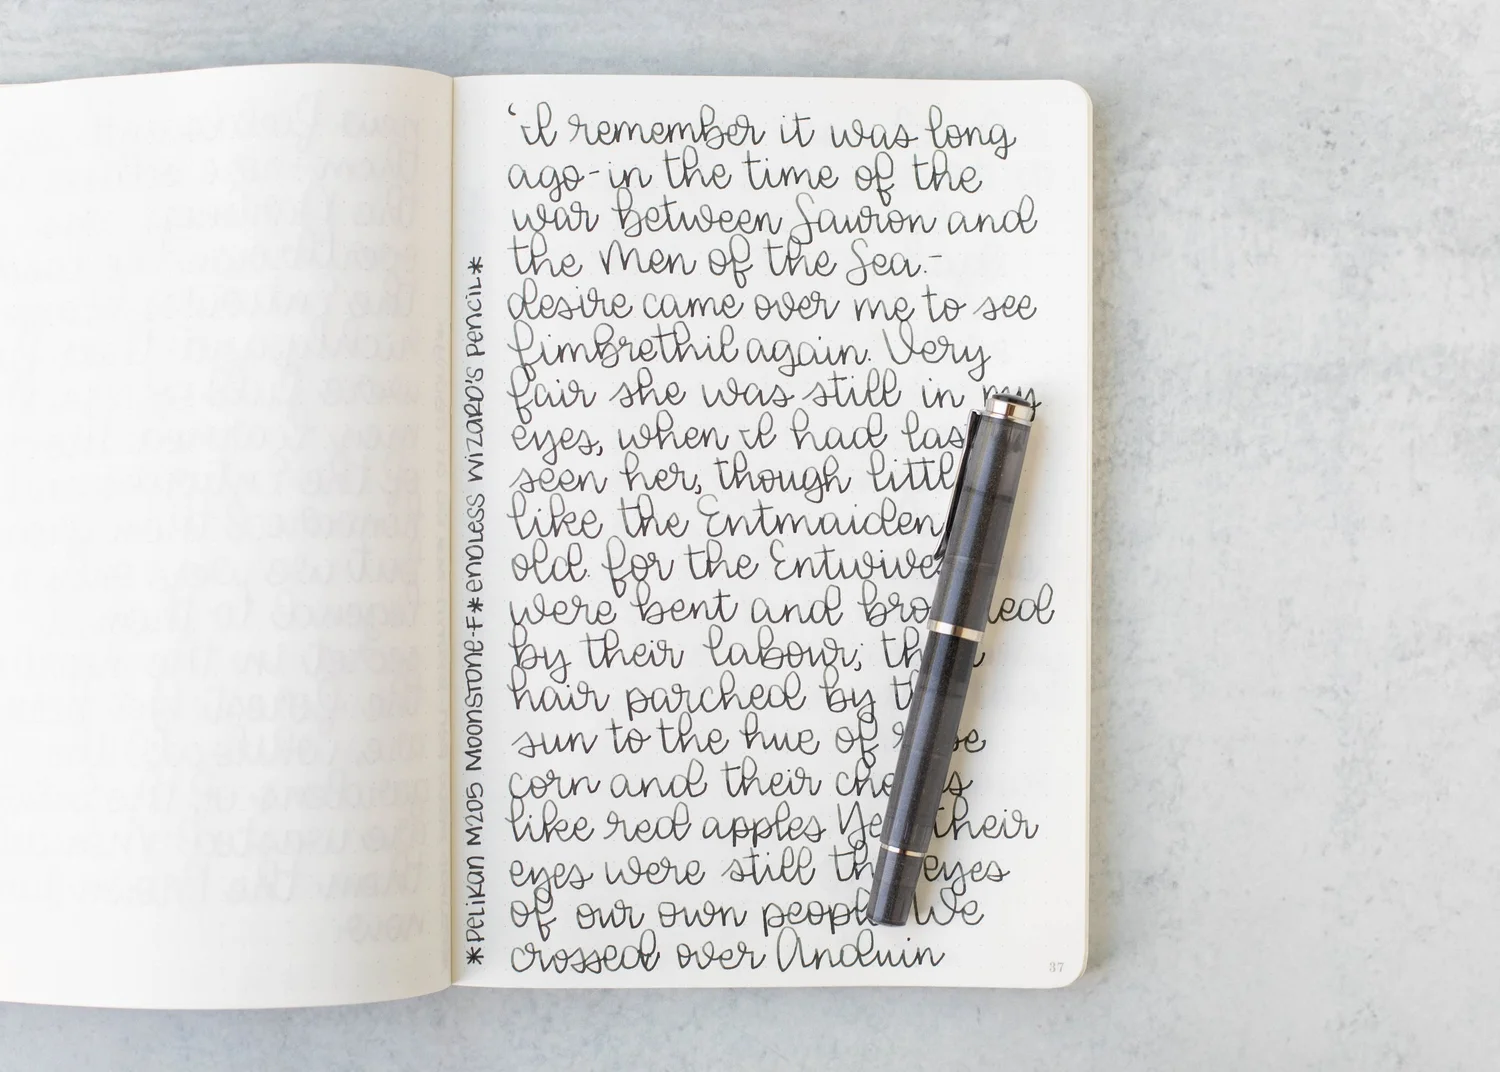 'I remember it was long
ago-in the time of the
war between Sauron and
the Men of the Sea.-
desire came over me to see
Fimbrethil again. Very
fair she was still in my
eyes, when I had las
seen her, though littl
like the Entmaiden
old. For the Entwive
were bent and bro ned
by their labour; th
hair parched by t
sun to the hue of
corn and their che s
like red apples Ye their
eyes were still th eyes
of our own peopl We
crossed over Anduin
*Pelikan M205 Moonstone-F*Endless Wizard's Pencil*
37